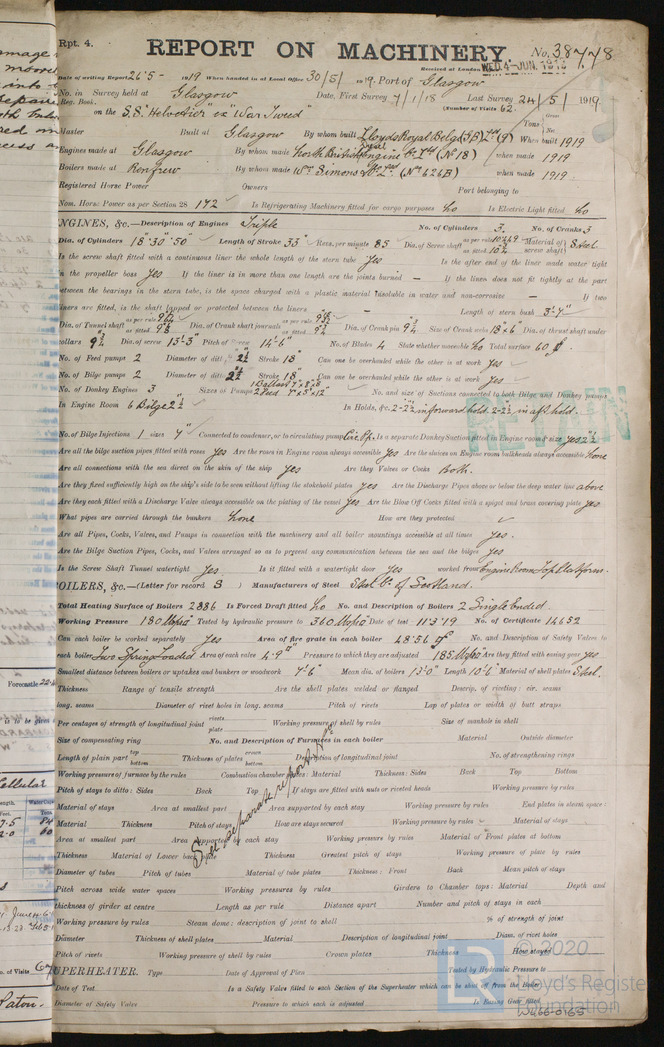 Rpt. 4.
REPORT ON MACHINERY.
No. 38778
Received at London WED. 4-JUN. 1919
Date of writing Report 26·5- 1919 When handed in at Local Office 30/5/1919. Port of Glasgow
No. in Survey held at Glasgow Date, First Survey 7/1/18 Last Survey 24/5/1919
Reg. Book. (Number of Visits 62.
on the S.S. "Helvetier" ex "War Tweed"
Tons Gross Net
Master Built at Glasgow By whom built Lloyds Royal Belge (GB) Ltd When built 1919
Engines made at Glasgow By whom made North British Diesel Engine Co Ltd (No 18) when made 1919
Boilers made at Renfrew By whom made Wm Simons & Co Ld. (No 626B) when made 1919
Registered Horse Power Owners Port belonging to
Nom. Horse Power as per Section 28 172 Is Refrigerating Machinery fitted for cargo purposes No Is Electric Light fitted No
ENGINES, &c.—Description of Engines Triple No. of Cylinders 3. No. of Cranks 3
Dia. of Cylinders 18" 30" 50" Length of Stroke 33" Revs. per minute 85 Dia. of Screw shaft as per rule as fitted Material of screw shaft Steel
Is the screw shaft fitted with a continuous liner the whole length of the stern tube Yes Is the after end of the liner made water tight
in the propeller boss Yes If the liner is in more than one length are the joints burned — If the liner does not fit tightly at the part
between the bearings in the stern tube, is the space charged with a plastic material insoluble in water and non-corrosive — If two
liners are fitted, is the shaft lapped or protected between the liners — Length of stern bush
Dia. of Tunnel shaft as per rule as fitted Dia. of Crank shaft journals as per rule as fitted Dia. of Crank pin 9¾ Size of Crank webs 18"x6 Dia. of thrust shaft under
collars 9½ Dia. of screw 13'-3" Pitch of Screw 14'-6" No. of Blades 4 State whether moveable No Total surface 60
No. of Feed pumps 2 Diameter of ditto 2½ Stroke 18" Can one be overhauled while the other is at work Yes
No. of Bilge pumps 2 Diameter of ditto 2½ Stroke 18" Can one be overhauled while the other is at work Yes
No. of Donkey Engines 3 Sizes of Pumps 1 Ballast 2 Feed No. and size of Suctions connected to both Bilge and Donkey pumps
In Engine Room 6 Bilge 2½ In Holds, &c. 2-2½ in forward hold. 2-2½ in aft hold.
RETAIN
No. of Bilge Injections 1 sizes 4" Connected to condenser, or to circulating pump Cir. Pp. Is a separate Donkey Suction fitted in Engine room & size Yes 2½
Are all the bilge suction pipes fitted with roses Yes Are the roses in Engine room always accessible Yes Are the sluices on Engine room bulkheads always accessible None
Are all connections with the sea direct on the skin of the ship Yes Are they Valves or Cocks Both.
Are they fixed sufficiently high on the ship's side to be seen without lifting the stokehold plates Yes Are the Discharge Pipes above or below the deep water line above
Are they each fitted with a Discharge Valve always accessible on the plating of the vessel Yes Are the Blow Off Cocks fitted with a spigot and brass covering plate yes
What pipes are carried through the bunkers None How are they protected
Are all Pipes, Cocks, Valves, and Pumps in connection with the machinery and all boiler mountings accessible at all times Yes.
Are the Bilge Suction Pipes, Cocks, and Valves arranged so as to prevent any communication between the sea and the bilges Yes
Is the Screw Shaft Tunnel watertight Yes Is it fitted with a watertight door Yes worked from Engine Room Top Platform.
BOILERS, &c.—(Letter for record S) Manufacturers of Steel Steel Co. of Scotland.
Total Heating Surface of Boilers 2886 Is Forced Draft fitted No No. and Description of Boilers 2 Single Ended.
Working Pressure 180 Tested by hydraulic pressure to 360 Date of test 11·3·19 No. of Certificate 14652
Can each boiler be worked separately Yes Area of fire grate in each boiler 48·56 No. and Description of Safety Valves to
each boiler Two Spring Loaded Area of each valve 4·9 Pressure to which they are adjusted 185 Are they fitted with easing gear yes
Smallest distance between boilers or uptakes and bunkers or woodwork 1'-6" Mean dia. of boilers 13'-0" Length 10'-6" Material of shell plates Steel.
Thickness Range of tensile strength Are the shell plates welded or flanged Descrip. of riveting: cir. seams
long. seams Diameter of rivet holes in long. seams Pitch of rivets Lap of plates or width of butt straps
Per centages of strength of longitudinal joint rivets plate Working pressure of shell by rules Size of manhole in shell
Size of compensating ring No. and Description of Furnaces in each boiler Material Outside diameter
Length of plain part top bottom Thickness of plates crown bottom Description of longitudinal joint No. of strengthening rings
Working pressure of furnace by the rules Combustion chamber plates: Material Thickness: Sides Back Top Bottom
Pitch of stays to ditto: Sides Back Top If stays are fitted with nuts or riveted heads Working pressure by rules
Material of stays Area at smallest part Area supported by each stay Working pressure by rules End plates in steam space:
Material Thickness Pitch of stays How are stays secured Working pressure by rules Material of stays
Area at smallest part Area supported by each stay Working pressure by rules Material of Front plates at bottom
Thickness Material of Lower back plate Thickness Greatest pitch of stays Working pressure of plate by rules
Diameter of tubes Pitch of tubes Material of tube plates Thickness: Front Back Mean pitch of stays
See separate report
Pitch across wide water spaces Working pressures by rules Girders to Chamber tops: Material Depth and
thickness of girder at centre Length as per rule Distance apart Number and pitch of stays in each
Working pressure by rules Steam dome: description of joint to shell % of strength of joint
Diameter Thickness of shell plates Material Description of longitudinal joint Diam. of rivet holes
Pitch of rivets Working pressure of shell by rules Crown plates Thickness How stayed
SUPERHEATER. Type Date of Approval of Plan Tested by Hydraulic Pressure to
Date of Test Is a Safety Valve fitted to each Section of the Superheater which can be shut off from the Boiler
Diameter of Safety Valve Pressure to which each is adjusted Is Easing Gear fitted
© 2020
Lloyd's Register
Foundation
W466-0165